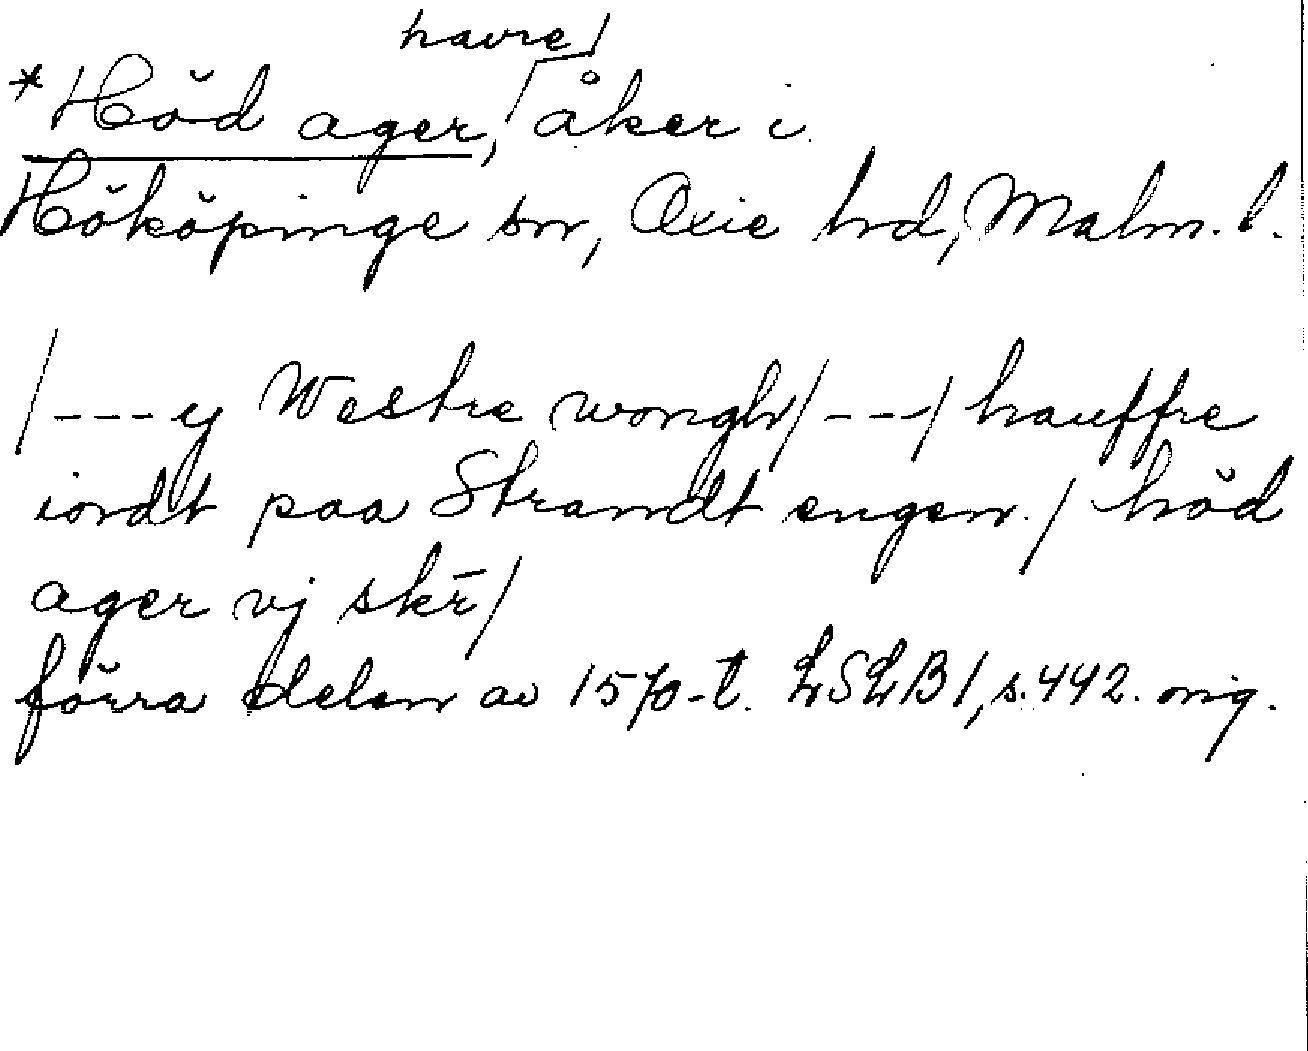 havre/
*Höd ager, åker i
Hököpinge sn, Oxie hd, Malm. l.
/---y Westre wongh/---/ hauffre
iordt paa Strandt engen./ höd
ager vj skr̄/
förra delen av 1570-t. LSLB1, s. 442. orig.